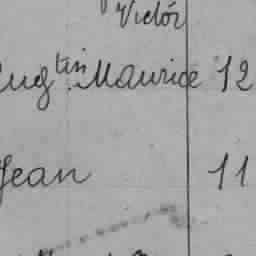 Victór
Eugtin Maurice 12
Jean 11